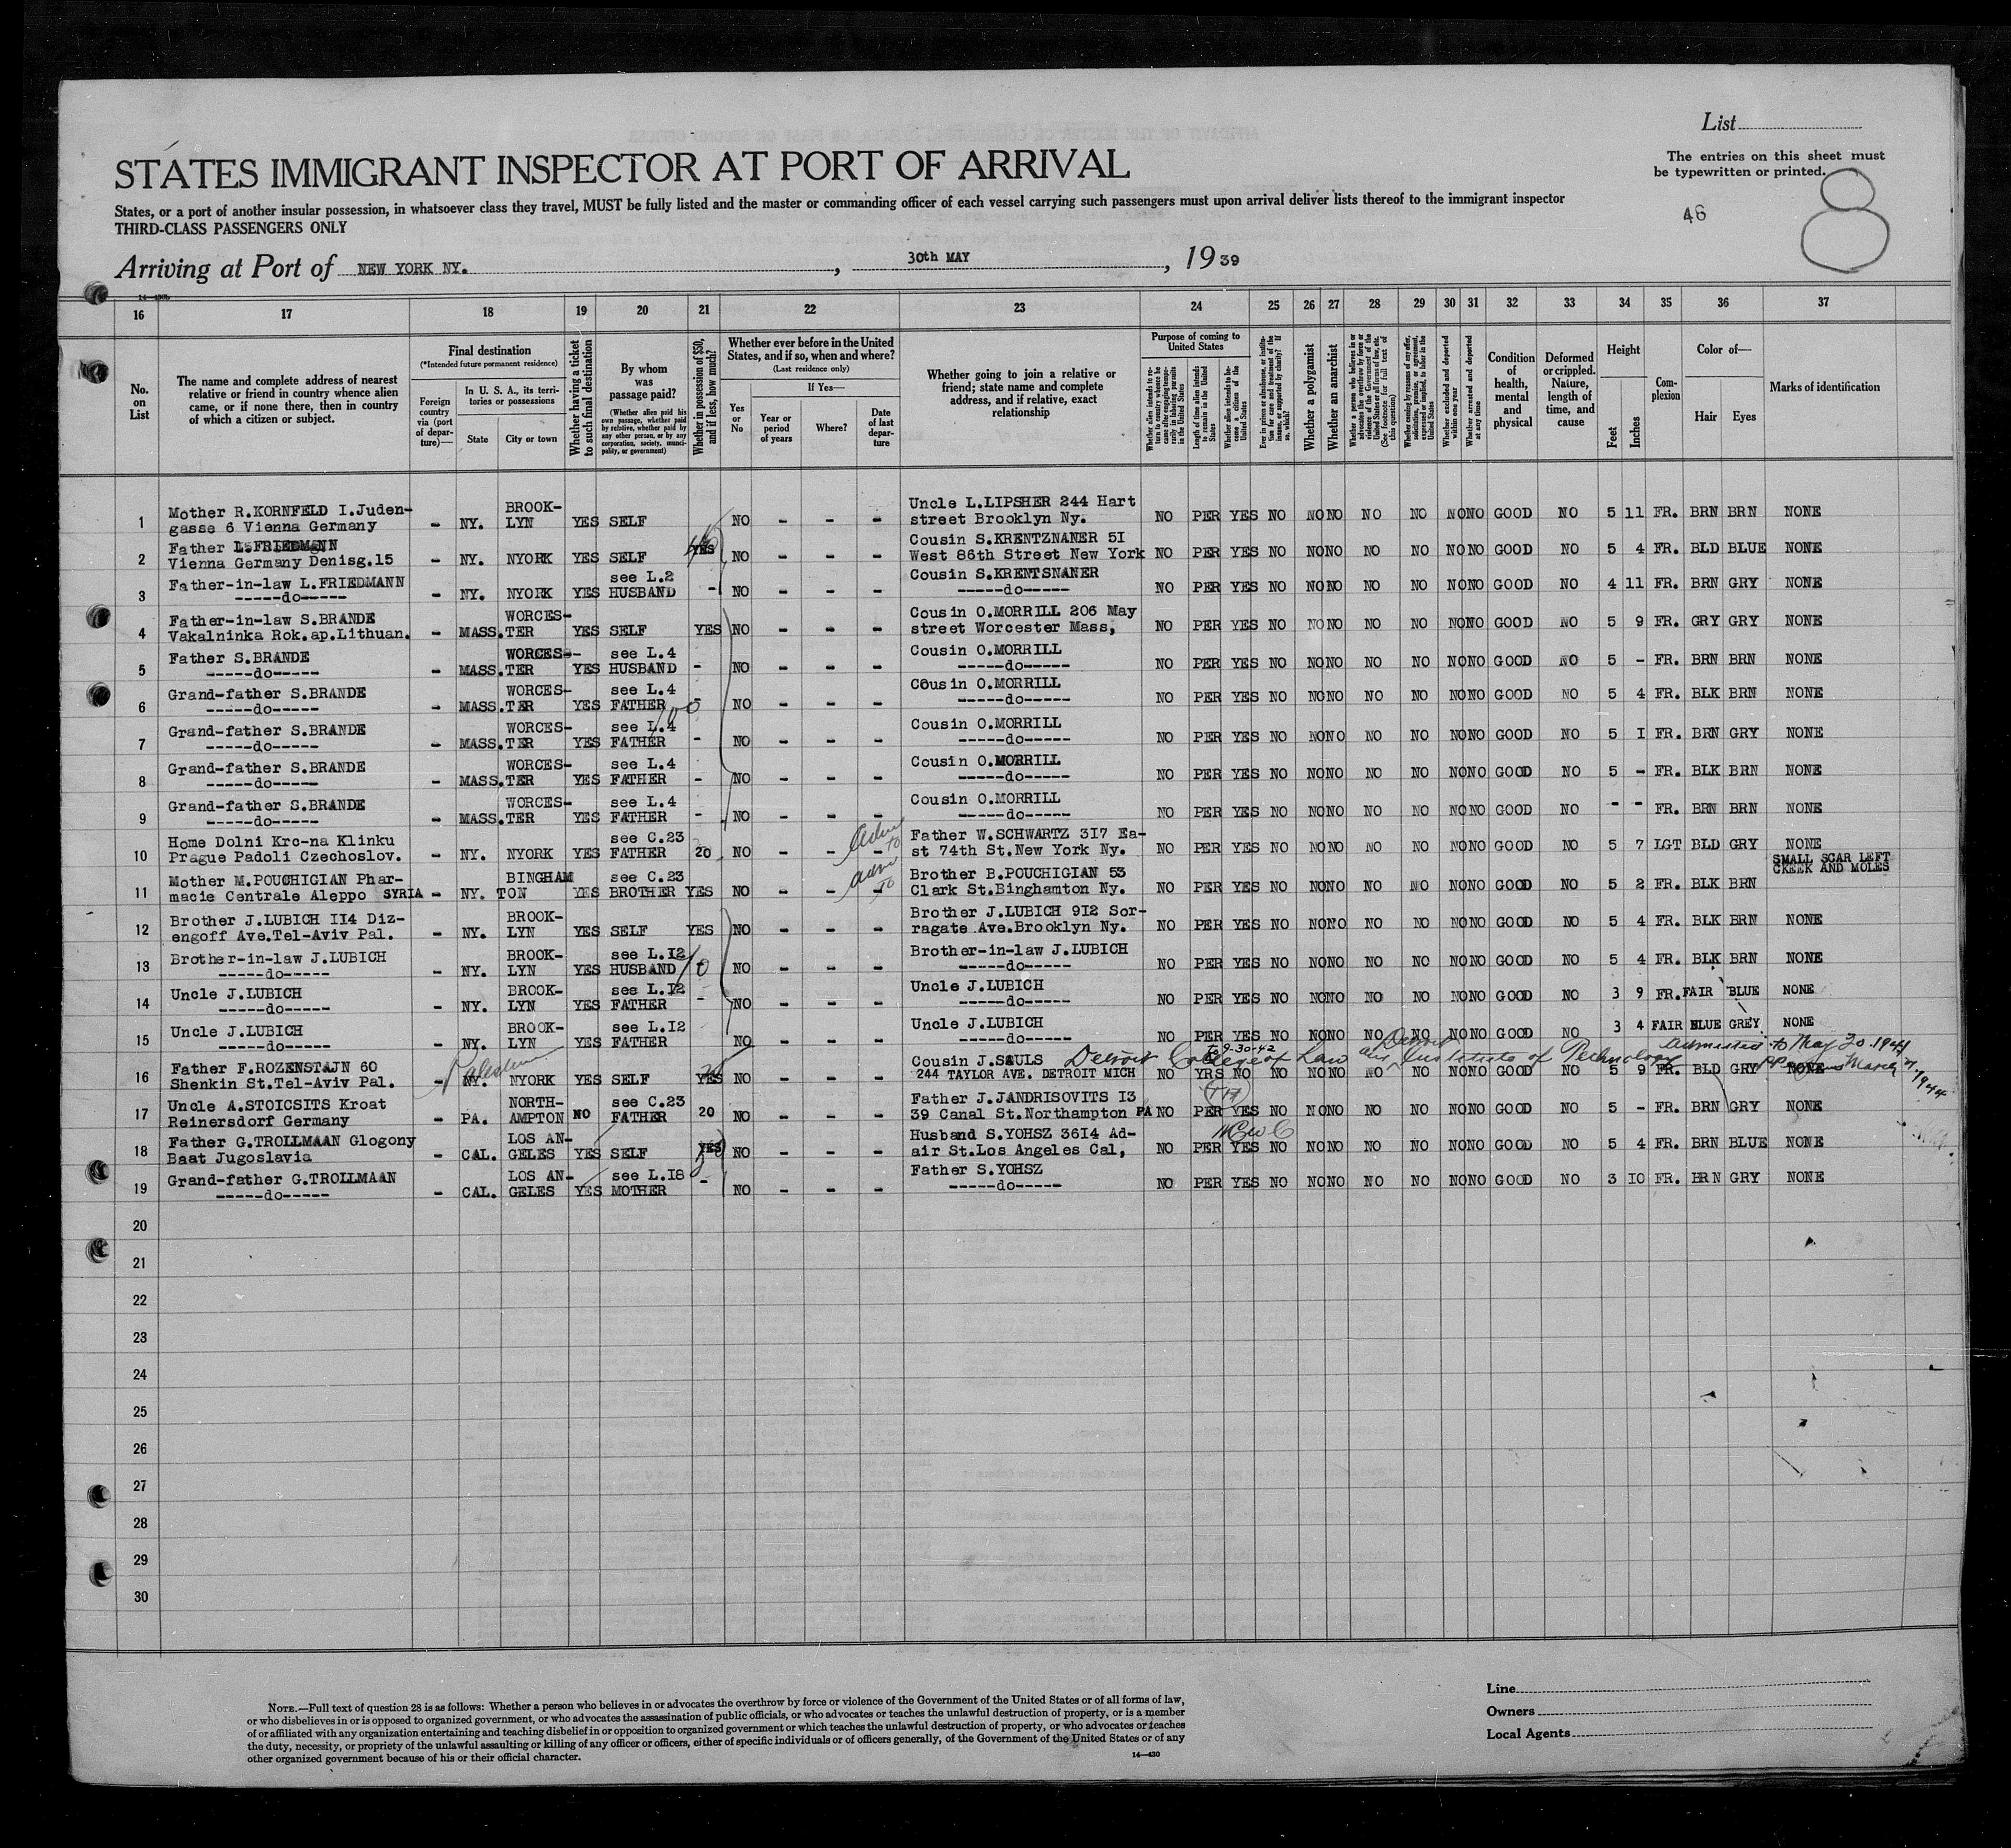 List
STATES IMMIGRANT INSPECTOR AT PORT OF ARRIVAL
The entries on this sheet must
be typewritten or printed.
States, or a port of another insular possession, in whatsoever class they travel, MUST be fully listed and the master or commanding officer of each vessel carrying such passengers must upon arrival deliver lists thereof to the immigrant inspector
THIRD-CLASS PASSENGERS ONLY
46
8
Arriving at Port of NEW YORK NY. , 30th MAY , 1939
16 17 18 19 20 21 22 23 24 25 26 27 28 29 30 31 32 33 34 35 36 37
No. on List
The name and complete address of nearest relative or friend in country whence alien came, or if none there, then in country of which a citizen or subject.
Final destination
(*Intended future permanent residence)
Foreign country via (port of departure)—
In U. S. A., its territories or possessions
State
City or town
Whether having a ticket to such final destination
By whom was passage paid?
(Whether alien paid his own passage, whether paid by relative, whether paid by any other person, or by any corporation, society, municipality, or government)
Whether in possession of $50, and if less, how much?
Whether ever before in the United States, and if so, when and where?
(Last residence only)
Yes or No
If Yes—
Year or period of years
Where?
Date of last departure
Whether going to join a relative or friend; state name and complete address, and if relative, exact relationship
Purpose of coming to United States
Whether alien intends to return to country whence he came after engaging temporarily in laboring pursuits in the United States
Length of time alien intends to remain in the United States
Whether alien intends to become a citizen of the United States
Ever in prison or almshouse, or institution for care and treatment of the insane, or supported by charity? If so, which?
Whether a polygamist
Whether an anarchist
Whether a person who believes in or advocates the overthrow by force or violence of the Government of the United States or all forms of law, etc. (See footnote for full text of this question)
Whether coming by reasons of any offer, solicitation, promise, or agreement, expressed or implied, to labor in the United States
Whether excluded and deported within one year
Whether arrested and deported at any time
Condition of health, mental and physical
Deformed or crippled. Nature, length of time, and cause
Height
Feet
Inches
Complexion
Color of—
Hair
Eyes
Marks of identification
1 Mother R.KORNFELD I.Juden-gasse 6 Vienna Germany - NY. BROOK-LYN YES SELF NO - - - Uncle L.LIPSHER 244 Hart street Brooklyn Ny. NO PER YES NO NO NO NO NO NO NO GOOD NO 5 11 FR. BRN BRN NONE
2 Father L.FRIEDMANN Vienna Germany Denisg.15 - NY. NYORK YES SELF YES NO - - - Cousin S.KRENTZNANER 5I West 86th Street New York NO PER YES NO NO NO NO NO NO NO GOOD NO 5 4 FR. BLD BLUE NONE
3 Father-in-law L.FRIEDMANN -----do----- - NY. NYORK YES see L.2 HUSBAND - NO - - - Cousin S.KRENTSNANER -----do----- NO PER YES NO NO NO NO NO NO NO GOOD NO 4 11 FR. BRN GRY NONE
4 Father-in-law S.BRANDE Vakalninka Rok.ap.Lithuan. - MASS. WORCES-TER YES SELF YES NO - - - Cousin O.MORRILL 206 May street Worcester Mass, NO PER YES NO NO NO NO NO NO NO GOOD NO 5 9 FR. GRY GRY NONE
5 Father S.BRANDE -----do----- - MASS. WORCES--TER YES see L.4 HUSBAND - NO - - - Cousin O.MORRILL -----do----- NO PER YES NO NO NO NO NO NO NO GOOD NO 5 - FR. BRN BRN NONE
6 Grand-father S.BRANDE -----do----- - MASS. WORCES-TER YES see L.4 FATHER - NO - - - Cousin O.MORRILL -----do----- NO PER YES NO NO NO NO NO NO NO GOOD NO 5 4 FR. BLK BRN NONE
7 Grand-father S.BRANDE -----do----- - MASS. WORCES-TER YES see L.4 FATHER - NO - - - Cousin O.MORRILL -----do----- NO PER YES NO NO NO NO NO NO NO GOOD NO 5 I FR. BRN GRY NONE
8 Grand-father S.BRANDE -----do----- - MASS. WORCES-TER YES see L.4 FATHER - NO - - - Cousin O.MORRILL -----do----- NO PER YES NO NO NO NO NO NO NO GOOD NO 5 - FR. BLK BRN NONE
9 Grand-father S.BRANDE -----do----- - MASS. WORCES-TER YES see L.4 FATHER - NO - - - Cousin O.MORRILL -----do----- NO PER YES NO NO NO NO NO NO NO GOOD NO - - FR. BRN BRN NONE
10 Home Dolni Kro-na Klinku Prague Padoli Czechoslov. - NY. NYORK YES see C.23 FATHER 20 NO - - - Father W.SCHWARTZ 3I7 Ea-st 74th St.New York Ny. NO PER YES NO NO NO NO NO NO NO GOOD NO 5 7 LGT BLD GRY NONE
11 Mother M.POUCHIGIAN Phar-macie Centrale Aleppo SYRIA - NY. BINGHAM TON YES see C.23 BROTHER YES NO - - - Brother B.POUCHIGIAN 53 Clark St.Binghamton Ny. NO PER YES NO NO NO NO NO NO NO GOOD NO 5 2 FR. BLK BRN SMALL SCAR LEFT CKEEK AND MOLES
12 Brother J.LUBICH II4 Diz-engoff Ave.Tel-Aviv Pal. - NY. BROOK-LYN YES SELF YES NO - - - Brother J.LUBICH 9I2 Sor-ragate Ave.Brooklyn Ny. NO PER YES NO NO NO NO NO NO NO GOOD NO 5 4 FR. BLK BRN NONE
13 Brother-in-law J.LUBICH -----do----- - NY. BROOK-LYN YES see L.I2 HUSBAND NO - - - Brother-in-law J.LUBICH -----do----- NO PER YES NO NO NO NO NO NO NO GOOD NO 5 4 FR. BLK BRN NONE
14 Uncle J.LUBICH -----do----- - NY. BROOK-LYN YES see L.I2 FATHER - NO - - - Uncle J.LUBICH -----do----- NO PER YES NO NO NO NO NO NO NO GOOD NO 3 9 FR. FAIR BLUE NONE
15 Uncle J.LUBICH -----do----- - NY. BROOK-LYN YES see L.I2 FATHER NO - - - Uncle J.LUBICH -----do----- NO PER YES NO NO NO NO NO NO NO GOOD NO 3 4 FAIR BLUE GREY NONE
to 9-30-42
Detroit College of Law and Detroit Institute of Technology
Admitted to May 30.1944
16 Father F.ROZENSTAJN 60 Shenkin St.Tel-Aviv Pal. Palestine - NY. NYORK YES SELF YES NO - - - Cousin J.SAULS 244 TAYLOR AVE. DETROIT MICH NO YRS NO NO NO NO NO NO NO NO GOOD NO 5 9 FR. BLD GRY NONE
17 Uncle A.STOICSITS Kroat Reinersdorf Germany - PA. NORTH-AMPTON NO see C.23 FATHER 20 NO - - - Father J.JANDRISOVITS I3 39 Canal St.Northampton PA NO PER YES NO NO NO NO NO NO NO GOOD NO 5 - FR. BRN GRY NONE
18 Father G.TROLLMAAN Glogony Baat Jugoslavia - CAL. LOS AN-GELES YES SELF YES NO - - - Husband S.YOHSZ 36I4 Ad-air St.Los Angeles Cal, NO PER YES NO NO NO NO NO NO NO GOOD NO 5 4 FR. BRN BLUE NONE
19 Grand-father G.TROLLMAAN -----do----- - CAL. LOS AN-GELES YES see L.I8 MOTHER - NO - - - Father S.YOHSZ -----do----- NO PER YES NO NO NO NO NO NO NO GOOD NO 3 IO FR. BRN GRY NONE
20
21
22
23
24
25
26
27
28
29
30
NOTE.—Full text of question 28 is as follows: Whether a person who believes in or advocates the overthrow by force or violence of the Government of the United States or of all forms of law,
or who disbelieves in or is opposed to organized government, or who advocates the assassination of public officials, or who advocates or teaches the unlawful destruction of property, or is a member
of or affiliated with any organization entertaining and teaching disbelief in or opposition to organized government or which teaches the unlawful destruction of property, or who advocates or teaches
the duty, necessity, or propriety of the unlawful assaulting or killing of any officer or officers, either of specific individuals or of officers generally, of the Government of the United States or of any
other organized government because of his or their official character.
14—430
Line
Owners
Local Agents